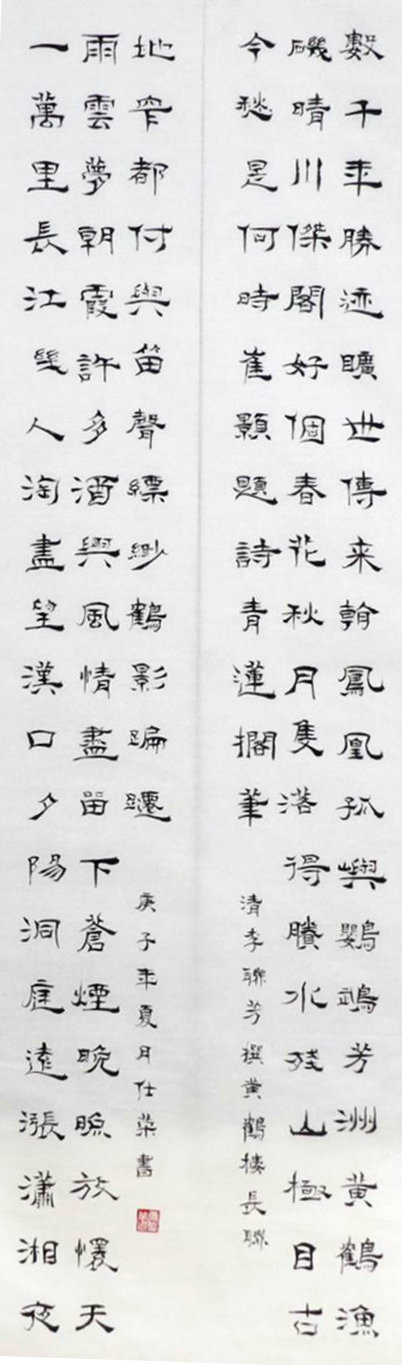 數千年勝迹曠世傳来看鳳凰孤嶼鸚鵡芳洲黄鶴漁
磯晴川傑閣好個春花秋月隻落得賸水殘山極目古
今愁是何時崔顥題詩青蓮擱筆
清李聯芳撰黄鶴楼長聯
一萬里長江幾人淘盡望漢口夕陽洞庭遠漲瀟湘夜
雨雲夢朝霞許多酒興風情盡留下蒼煙晚照放懷天
地窄都付與笛聲縹緲鶴影蹁躚
庚子年夏月仕榮書